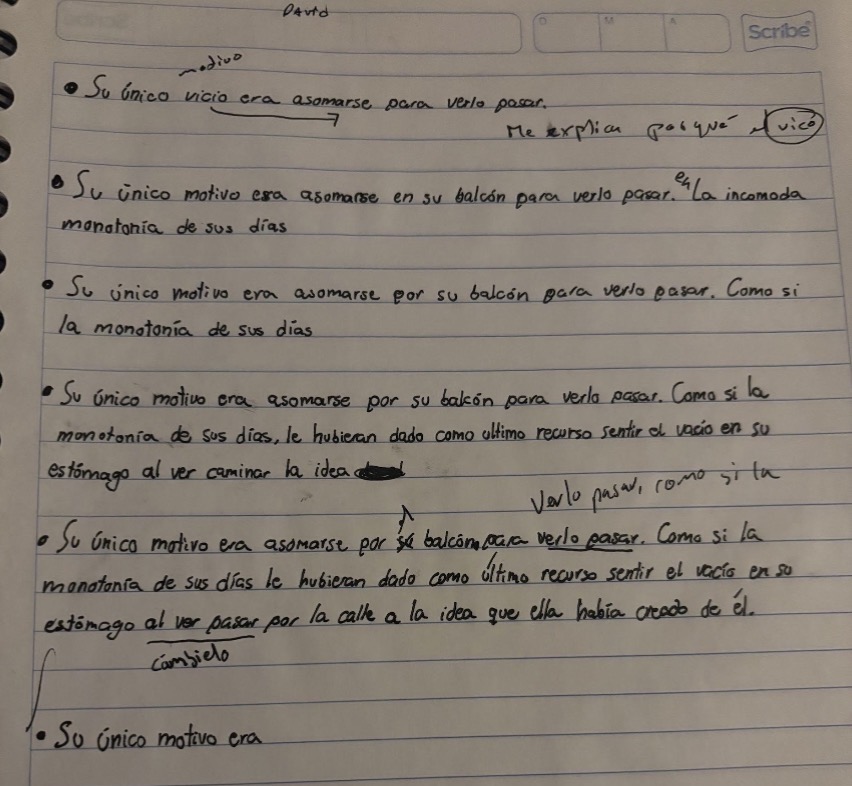 David
Scribe
D M A
motivo
• Su único vicio era asomarse para verlo pasar.
Me explica por qué el vicio
• Su único motivo era asomarse en su balcón para verlo pasar. en La incomoda
monotonía de sus días
• Su único motivo era asomarse por su balcón para verlo pasar. Como si
la monotonía de sus días
• Su único motivo era asomarse por su balcón para verlo pasar. Como si la
monotonía de sus días, le hubieran dado como ultimo recurso sentir el vacío en su
estómago al ver caminar la idea
Verlo pasar, como si la
• Su único motivo era asomarse por balcón, para verlo pasar. Como si la
monotonía de sus días le hubieran dado como último recurso sentir el vacío en su
estómago al ver pasar por la calle a la idea que ella había creado de él.
cambielo
• Su único motivo era